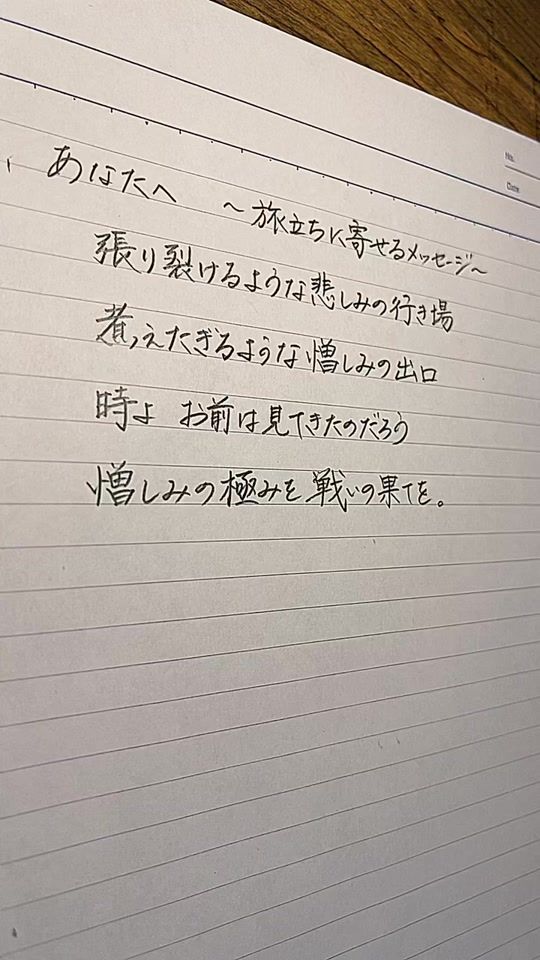 、あなたへ ～旅立ちに寄せるメッセージ～
張り裂けるような悲しみの行き場
煮えたぎるような憎しみの出口
時よ お前は見てきたのだろう
憎しみの極みを 戦いの果てを。
No.
Date